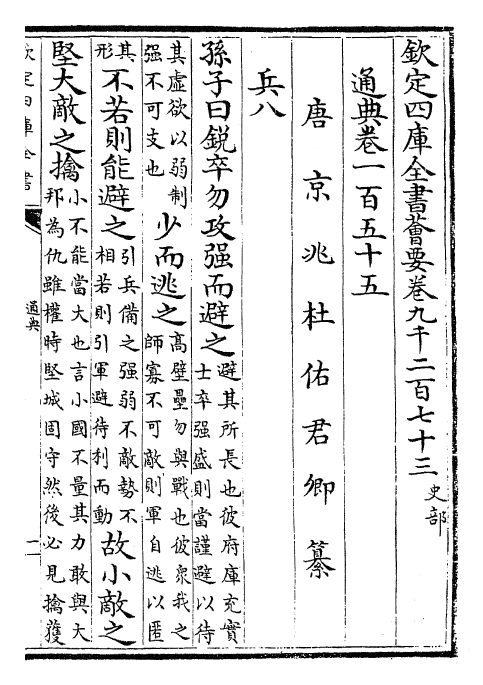 欽定四庫全書薈要卷九千二百七十三
史部
通典卷一百五十五
唐京兆杜佑君卿纂
兵八
孫子曰鋭卒勿攻强而避之避其所長也彼府庫充實
士卒强盛則當謹避以待
其虛欲以弱制
强不可支也少而逃之高壁壘勿與戰也彼衆我之
師寡不可敵則軍自逃以匿
其
形不若則能避之引兵備之强弱不敵勢不
相若則引軍避待利而動故小敵之
堅大敵之擒小不能當大也言小國不量其力敢與大
邦為仇雖權時堅城固守然後必見擒獲
欽定四庫全書
通典
一